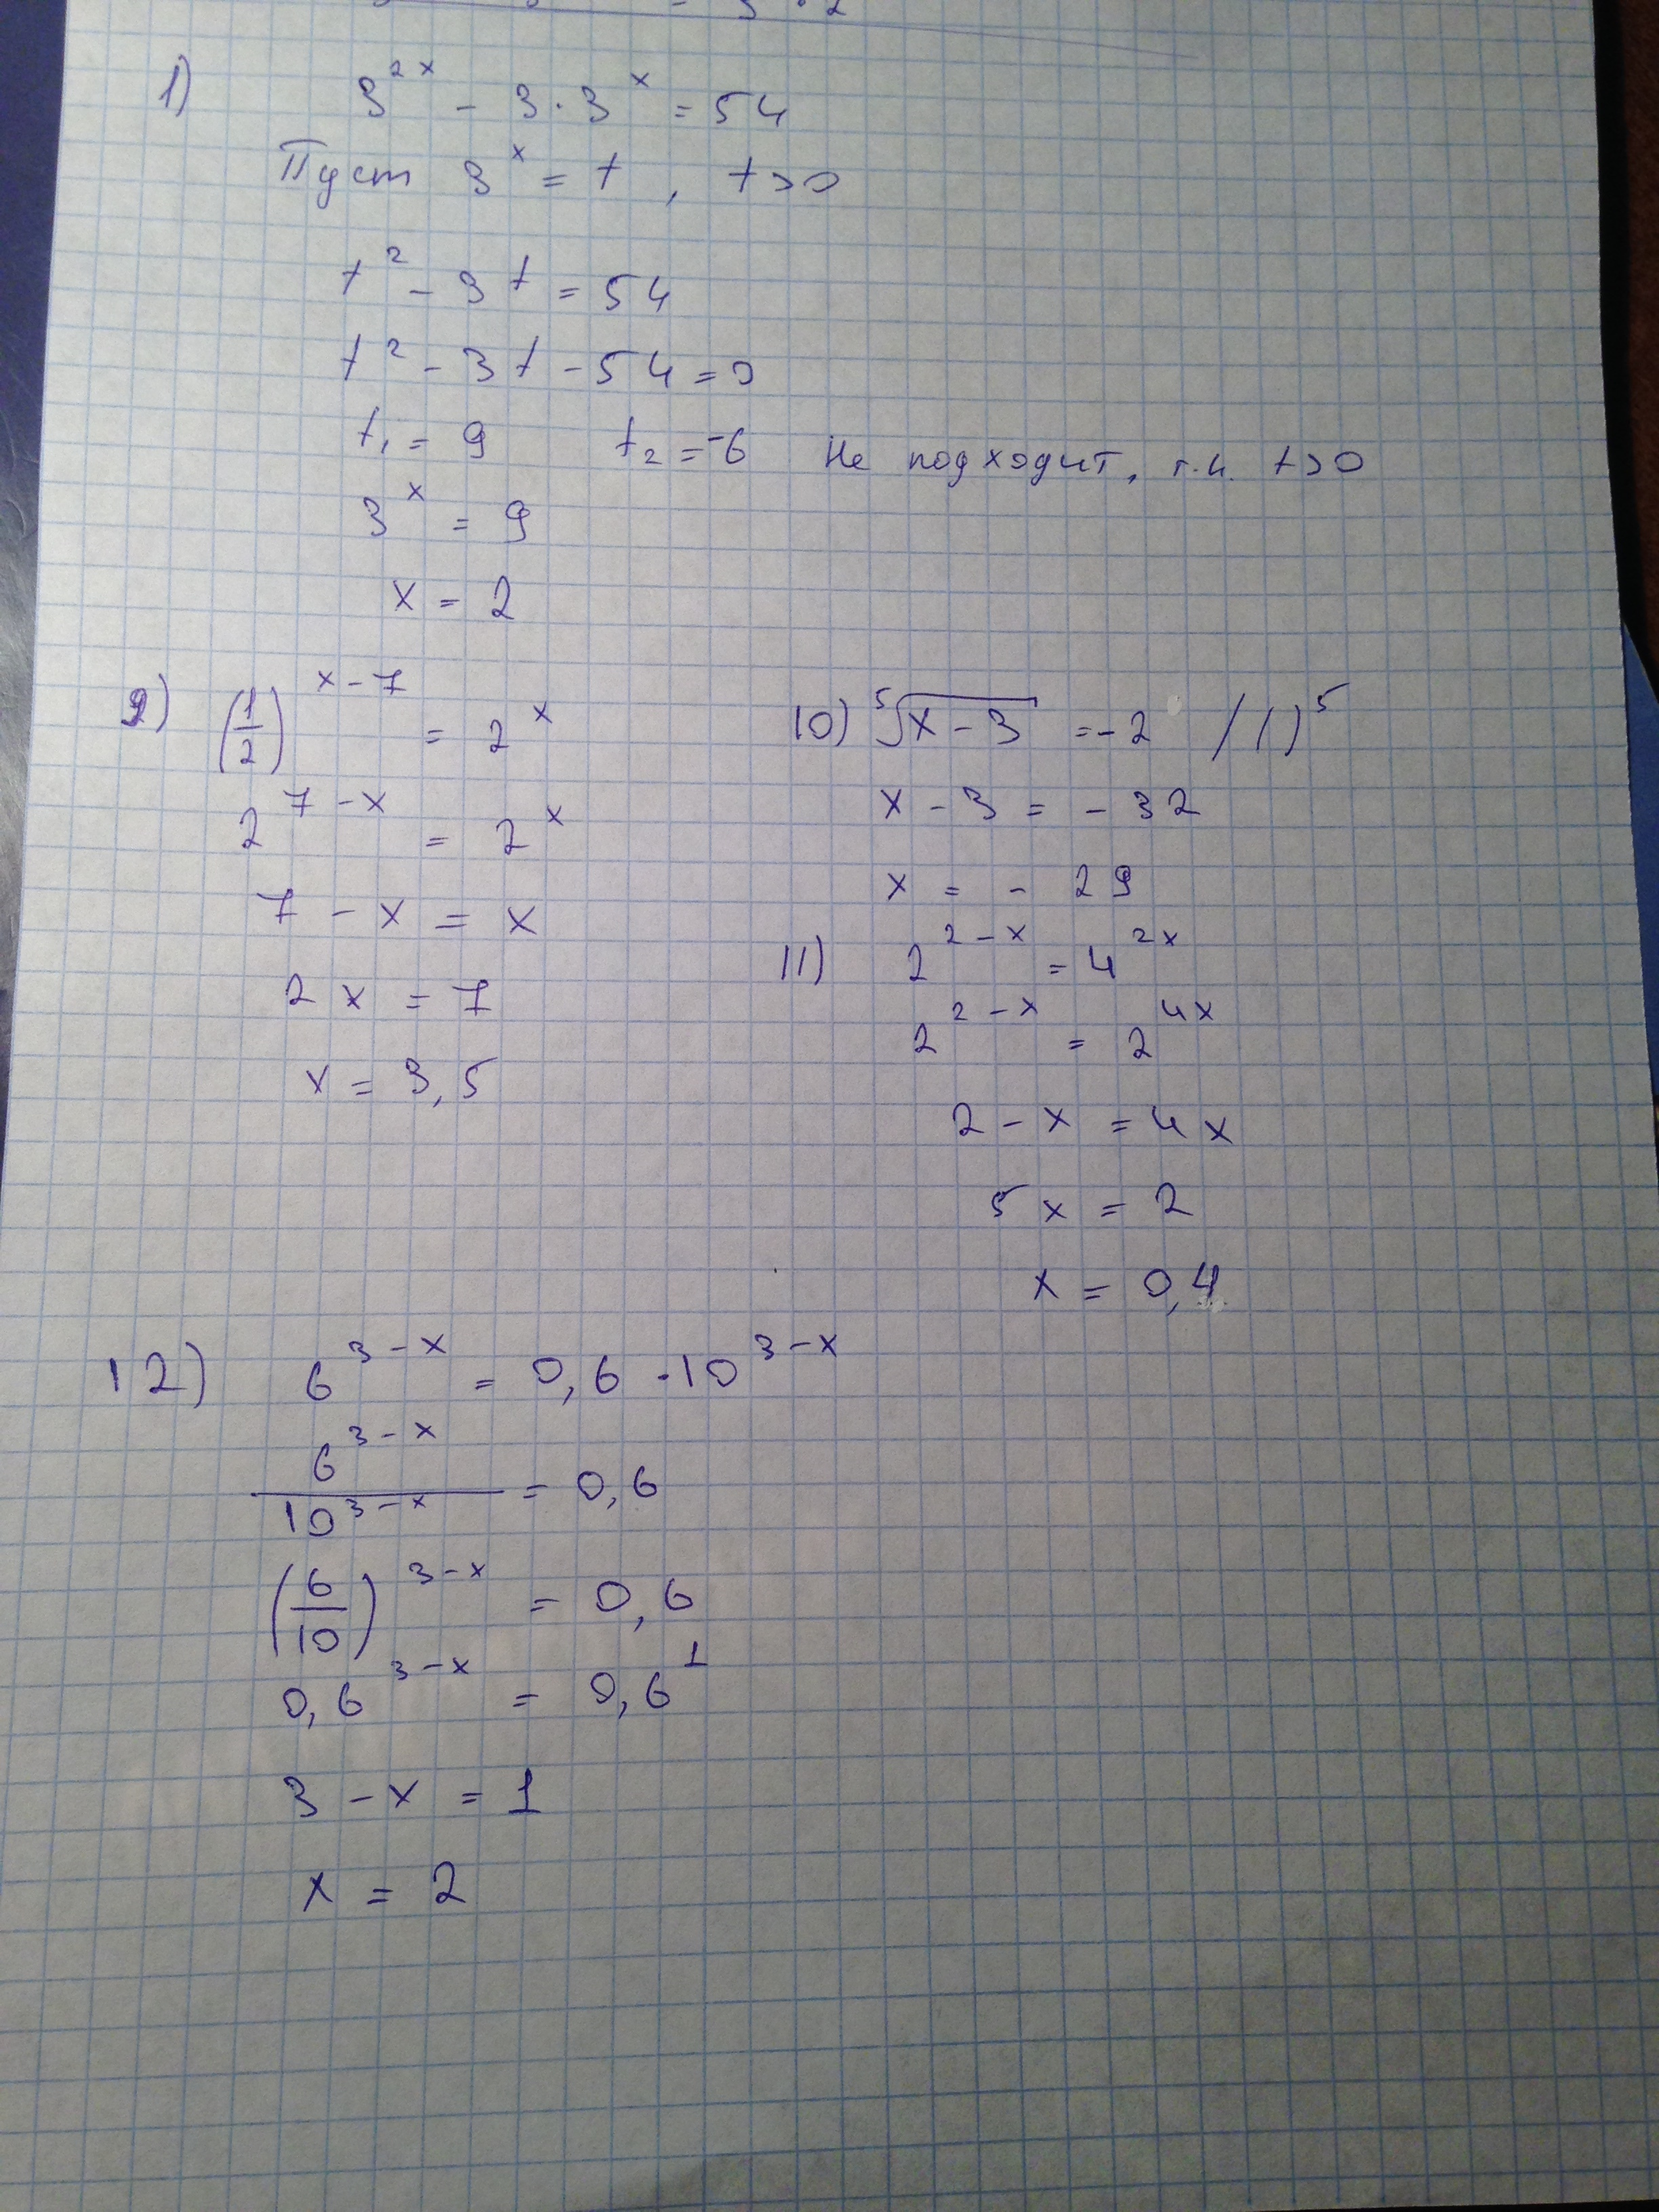 1) 3^{2x} - 3·3^x = 54
Пуст 3^x = t, t>0
t^2 - 3t = 54
t^2 - 3t - 54 = 0
t_1 = 9 t_2 = -6 Не подходит, т.к. t>0
3^x = 9
x = 2
9) (1/2)^{x-7} = 2^x
2^{7-x} = 2^x
7 - x = x
2x = 7
x = 3,5
10) ⁵√(x-3) = -2 /()^5
x - 3 = -32
x = -29
11) 2^{2-x} = 4^{2x}
2^{2-x} = 2^{4x}
2 - x = 4x
5x = 2
x = 0,4
12) 6^{3-x} = 0,6·10^{3-x}
6^{3-x}/10^{3-x} = 0,6
(6/10)^{3-x} = 0,6
0,6^{3-x} = 0,6^1
3 - x = 1
x = 2